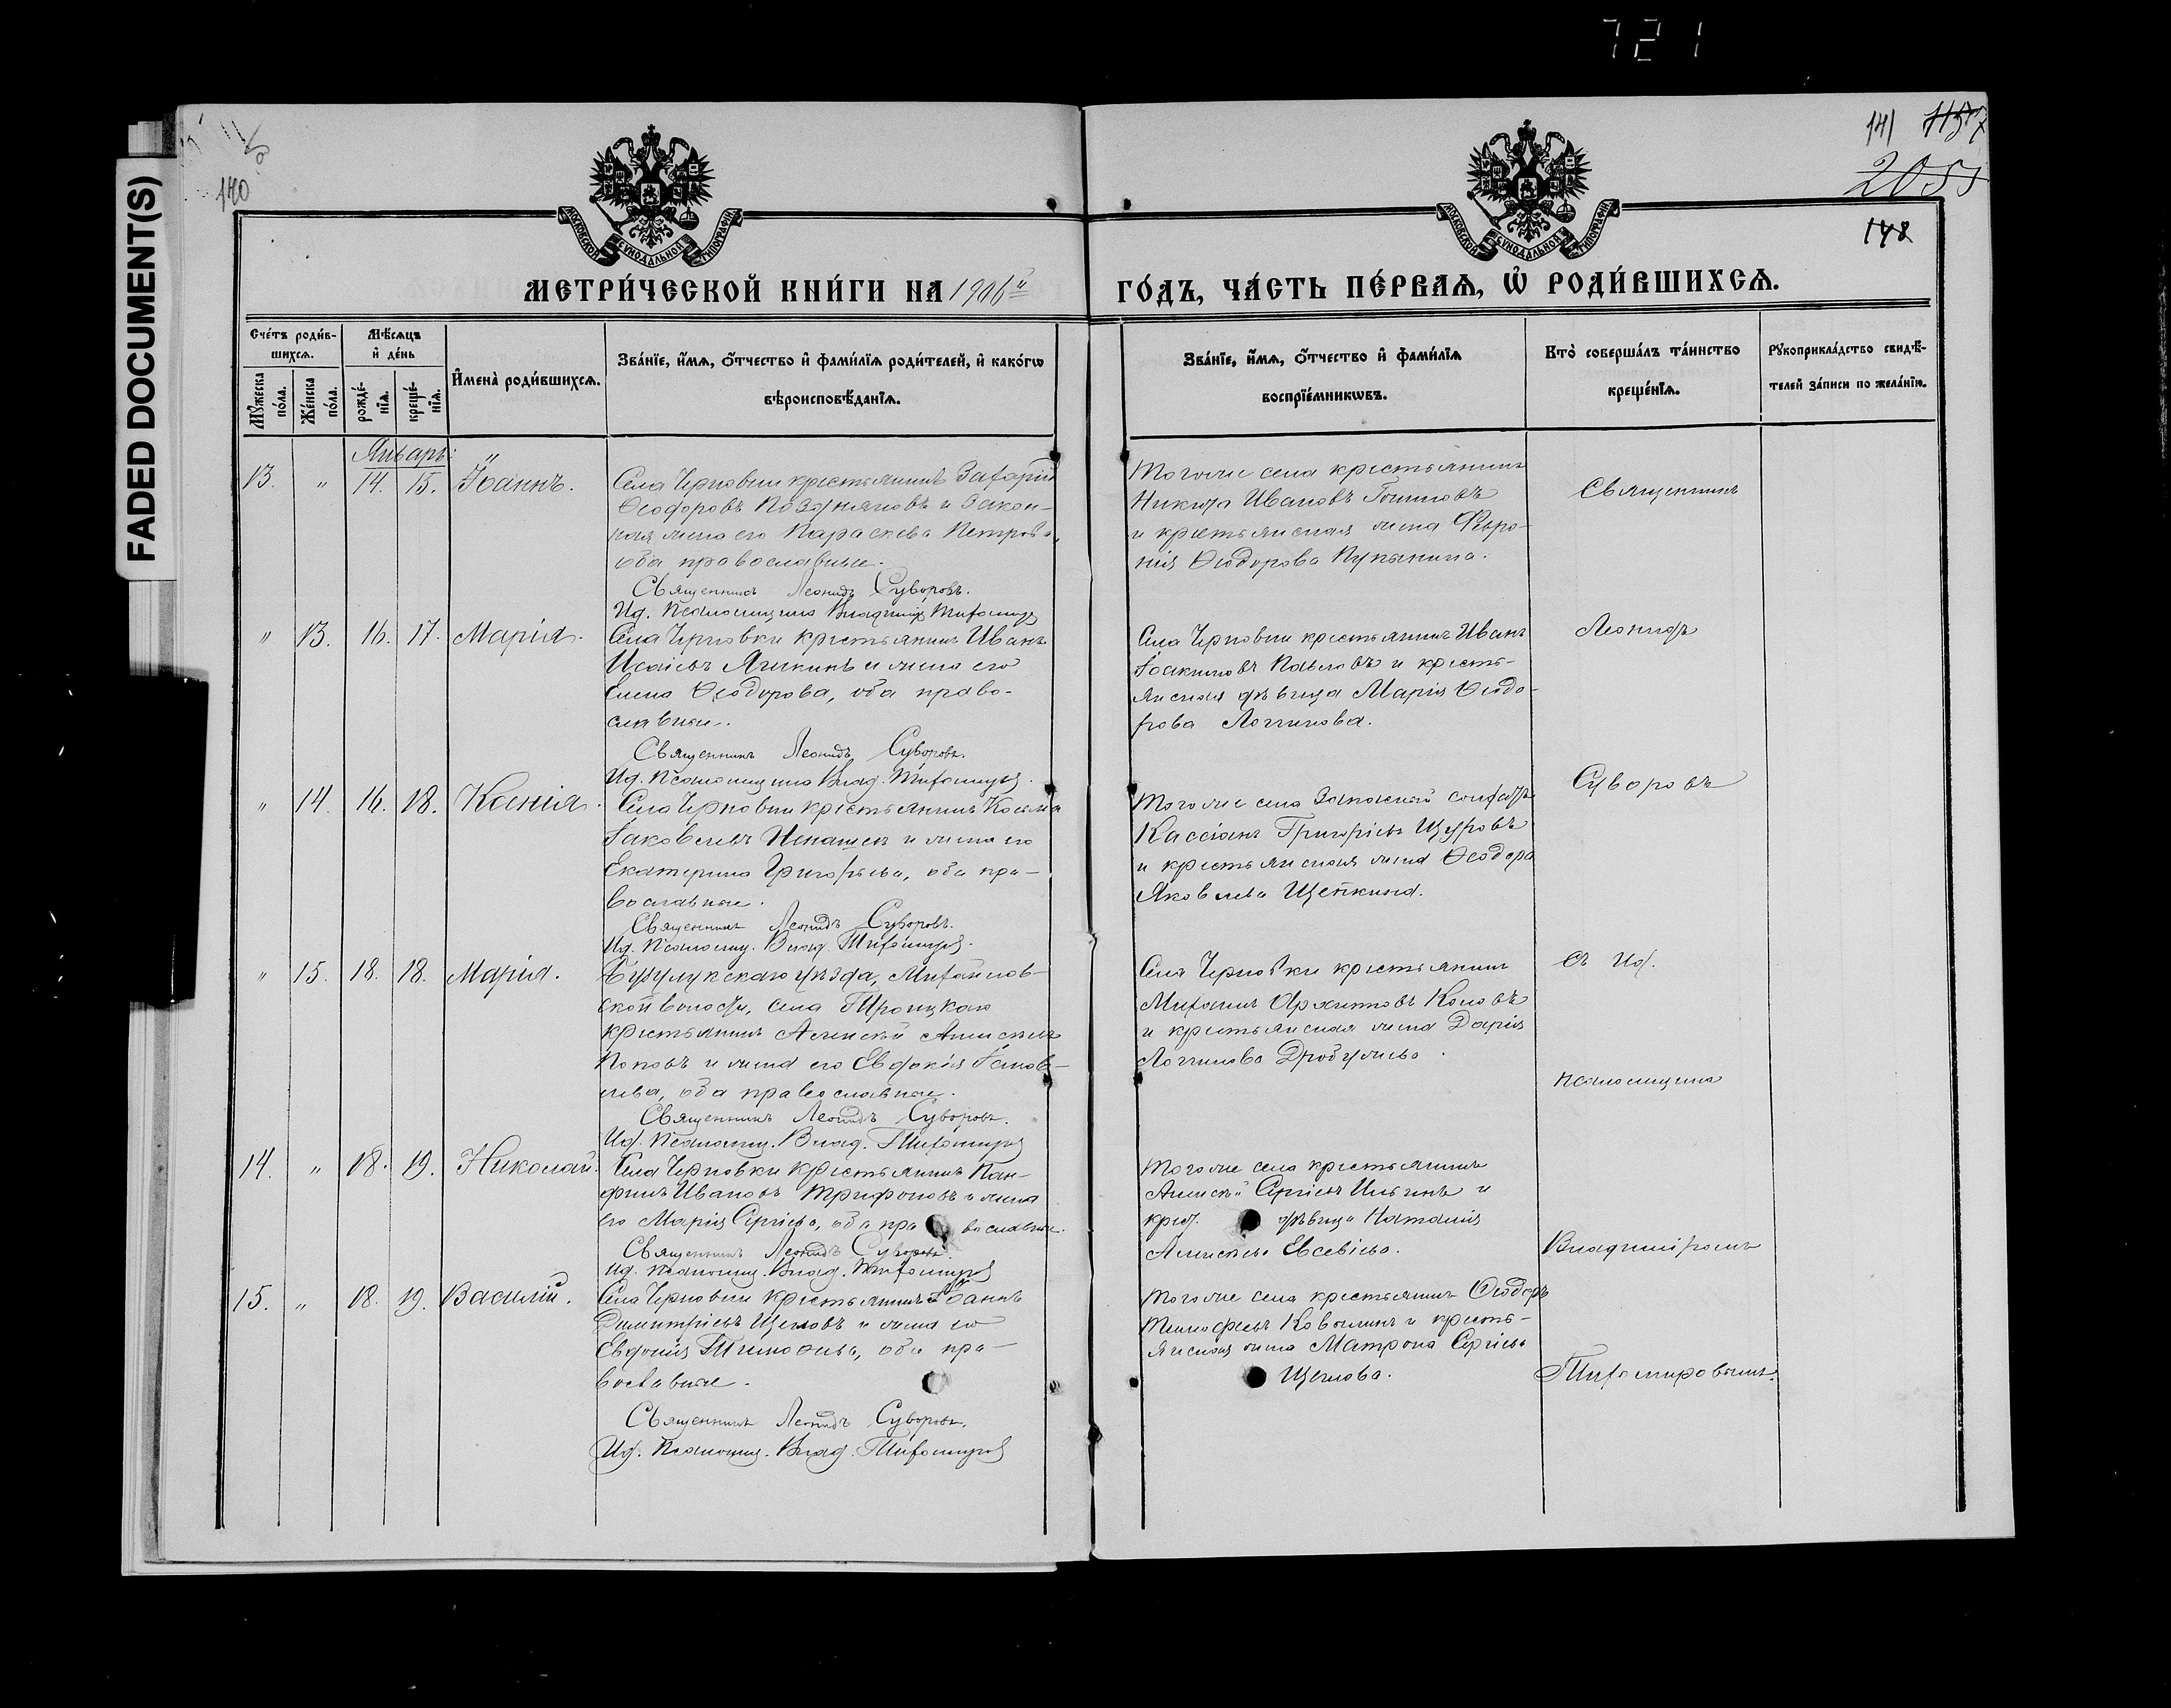 721
FADED DOCUMENT(S)
140
141
2055
148
МОСКОВСКОЙ СѴНОДАЛЬНОЙ ТИПОГРАФІИ
МОСКОВСКОЙ СѴНОДАЛЬНОЙ ТИПОГРАФІИ
МЕТРИ́ЧЕСКОЙ КНИ́ГИ НА 1906й
ГО́ДЪ, ЧА́СТЬ ПЕ́РВАѦ, Ѡ҆ РОДИ́ВШИХСѦ.
Сче́тъ роди́в-
шихсѧ.
Мꙋ́жеска по́ла.
Же́нска по́ла.
Мѣ́сѧцъ
и҆ де́нь
рожде́-
нїѧ.
креще́-
нїѧ.
И҆мена̀ роди́вшихсѧ.
Зва́нїе, и҆́мѧ, ѻ҆́тчество и҆ фами́лїѧ роди́телей, и҆ како́гѡ
вѣроисповѣ́данїѧ.
Зва́нїе, и҆́мѧ, ѻ҆́тчество и҆ фами́лїѧ
воспрїе́мникѡвъ.
Кто̀ соверша́лъ та́инство
креще́нїѧ.
Рꙋкоприкла́дство свидѣ́-
телей за́писи по жела́нїю.
Январь
13. " 14. 15. Іоаннъ.
Села Черновки крестьянинъ Захарій
Ѳеодоровъ Поздняковъ и закон-
ная жена его Параскева Петрова,
оба православные.
Священникъ Леонидъ Суворовъ.
Ид. Псаломщика Владиміръ Тихомировъ
Тогоже села крестьянинъ
Никита Ивановъ
и крестьянская жена Февро-
нія Ѳеодорова Пупынина.
Священникъ
" 13. 16. 17. Марія.
Села Черновки крестьянинъ Иванъ
Исаіевъ Ягикинъ и жена его
Елена Ѳеодорова, оба право-
славные.
Священникъ Леонидъ Суворовъ.
Ид. Псаломщика Влад. Тихомировъ.
Села Черновки крестьянинъ Иванъ
Іоакимовъ Павловъ и кресть-
янская дѣвица Марія Ѳеодо-
рова Логинова.
Леонидъ
" 14. 16. 18. Ксенія.
Села Черновки крестьянинъ Косьма
Іаковлевъ и жена его
Екатерина Григорьева, оба пра-
вославные.
Священникъ Леонидъ Суворовъ.
Ид. Псаломщ. Влад. Тихомировъ.
Тогоже села Запасный солдатъ
Кассіанъ Григорьевъ Щуровъ
и крестьянская жена Ѳеодора
Яковлева Щепкина.
Суворовъ
" 15. 18. 18. Марія.
Бузулукскаго уѣзда, Михайлов-
ской волости, села Троицкаго
крестьянинъ Алексѣй Алексѣевъ
Поповъ и жена его Евдокія Іаков-
лева, оба православные.
Священникъ Леонидъ Суворовъ.
Ид. Псаломщ. Влад. Тихомировъ
Села Черновки крестьянинъ
Михаилъ Архиповъ
и крестьянская жена Дарія
Логинова
съ Ид.
псаломщика
14. " 18. 19. Николай.
Села Черновки крестьянинъ Пан-
филъ Ивановъ Трифоновъ и жена
его Марія Сергіева, оба православные.
Священникъ Леонидъ Суворовъ.
Ид. Псаломщ. Влад. Тихомировъ
Тогоже села крестьянинъ
Алексѣй Сергіевъ Ильинъ и
крест. дѣвица Наталія
Алексѣева Евсевіева.
Владиміромъ
15. " 18. 19. Василій.
Села Черновки крестьянинъ Іоаннъ
Димитріевъ Щегловъ и жена его
Евдокія Тимоѳеева, оба пра-
вославные.
Священникъ Леонидъ Суворовъ.
Ид. Псаломщ. Влад. Тихомировъ
Тогоже села крестьянинъ Ѳеодоръ
Тимофеевъ Ковылинъ и кресть-
янская жена Матрона Сергіева
Щеглова.
Тихомировымъ.